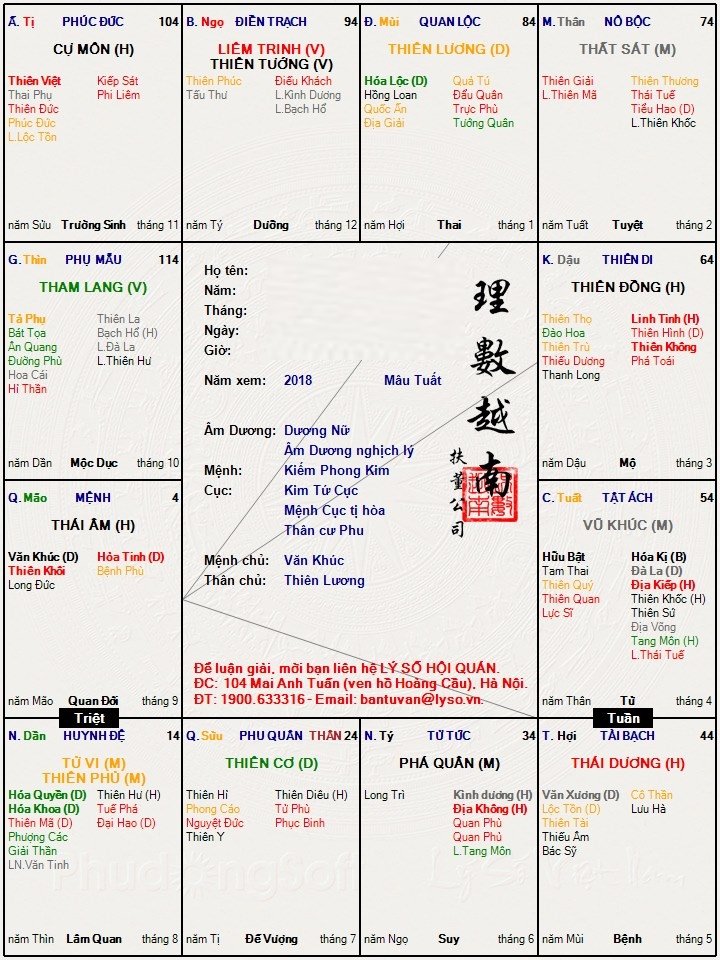 Ấ. Tị PHÚC ĐỨC 104
CỰ MÔN (H)
Thiên Việt Kiếp Sát
Thai Phụ Phi Liêm
Thiên Đức
Phúc Đức
L.Lộc Tồn
năm Sửu Trường Sinh tháng 11
B. Ngọ ĐIỀN TRẠCH 94
LIÊM TRINH (V)
THIÊN TƯỚNG (V)
Thiên Phúc Điếu Khách
Tấu Thư L.Kình Dương
L.Bạch Hổ
năm Tý Dưỡng tháng 12
Đ. Mùi QUAN LỘC 84
THIÊN LƯƠNG (D)
Hóa Lộc (D) Quả Tú
Hồng Loan Đẩu Quân
Quốc Ấn Trực Phù
Địa Giải Tướng Quân
năm Hợi Thai tháng 1
M. Thân NÔ BỘC 74
THẤT SÁT (M)
Thiên Giải Thiên Thương
L.Thiên Mã Thái Tuế
Tiểu Hao (D)
L.Thiên Khốc
năm Tuất Tuyệt tháng 2
G. Thìn PHỤ MẪU 114
THAM LANG (V)
Tả Phụ Thiên La
Bát Tọa Bạch Hổ (H)
Ân Quang L.Đà La
Đường Phù L.Thiên Hư
Hoa Cái
Hỉ Thần
năm Dần Mộc Dục tháng 10
Họ tên:
Năm:
Tháng:
Ngày:
Giờ:
Năm xem: 2018 Mậu Tuất
Âm Dương: Dương Nữ
Âm Dương nghịch lý
Mệnh: Kiếm Phong Kim
Cục: Kim Tứ Cục
Mệnh Cục tị hòa
Thân cư Phu
Mệnh chủ: Văn Khúc
Thân chủ: Thiên Lương
理數越南
扶董公司
Để luận giải, mời bạn liên hệ LÝ SỐ HỘI QUÁN.
ĐC: 104 Mai Anh Tuấn (ven hồ Hoàng Cầu), Hà Nội.
ĐT: 1900.633316 - Email: bantuvan@lyso.vn.
K. Dậu THIÊN DI 64
THIÊN ĐỒNG (H)
Thiên Thọ Linh Tinh (H)
Đào Hoa Thiên Hình (D)
Thiên Trù Thiên Không
Thiếu Dương Phá Toái
Thanh Long
năm Dậu Mộ tháng 3
Q. Mão MỆNH 4
THÁI ÂM (H)
Văn Khúc (D) Hỏa Tinh (D)
Thiên Khôi Bệnh Phù
Long Đức
năm Mão Quan Đới tháng 9
Triệt
C. Tuất TẬT ÁCH 54
VŨ KHÚC (M)
Hữu Bật Hóa Kị (B)
Tam Thai Đà La (D)
Thiên Quý Địa Kiếp (H)
Thiên Quan Thiên Khốc (H)
Lực Sĩ Thiên Sứ
Địa Võng
Tang Môn (H)
L.Thái Tuế
năm Thân Tử tháng 4
Tuần
N. Dần HUYNH ĐỆ 14
TỬ VI (M)
THIÊN PHỦ (M)
Hóa Quyền (D) Thiên Hư (H)
Hóa Khoa (D) Tuế Phá
Thiên Mã (D) Đại Hao (D)
Phượng Các
Giải Thần
LN.Văn Tinh
năm Thìn Lâm Quan tháng 8
Q. Sửu PHU QUÂN THÂN 24
THIÊN CƠ (D)
Thiên Hỉ Thiên Diêu (H)
Phong Cáo Tử Phù
Nguyệt Đức Phục Binh
Thiên Y
năm Tị Đế Vượng tháng 7
N. Tý TỬ TỨC 34
PHÁ QUÂN (M)
Long Trì Kình dương (H)
Địa Không (H)
Quan Phù
Quan Phủ
L.Tang Môn
năm Ngọ Suy tháng 6
T. Hợi TÀI BẠCH 44
THÁI DƯƠNG (H)
Văn Xương (D) Cô Thần
Lộc Tồn (D) Lưu Hà
Thiên Tài
Thiếu Âm
Bác Sỹ
năm Mùi Bệnh tháng 5